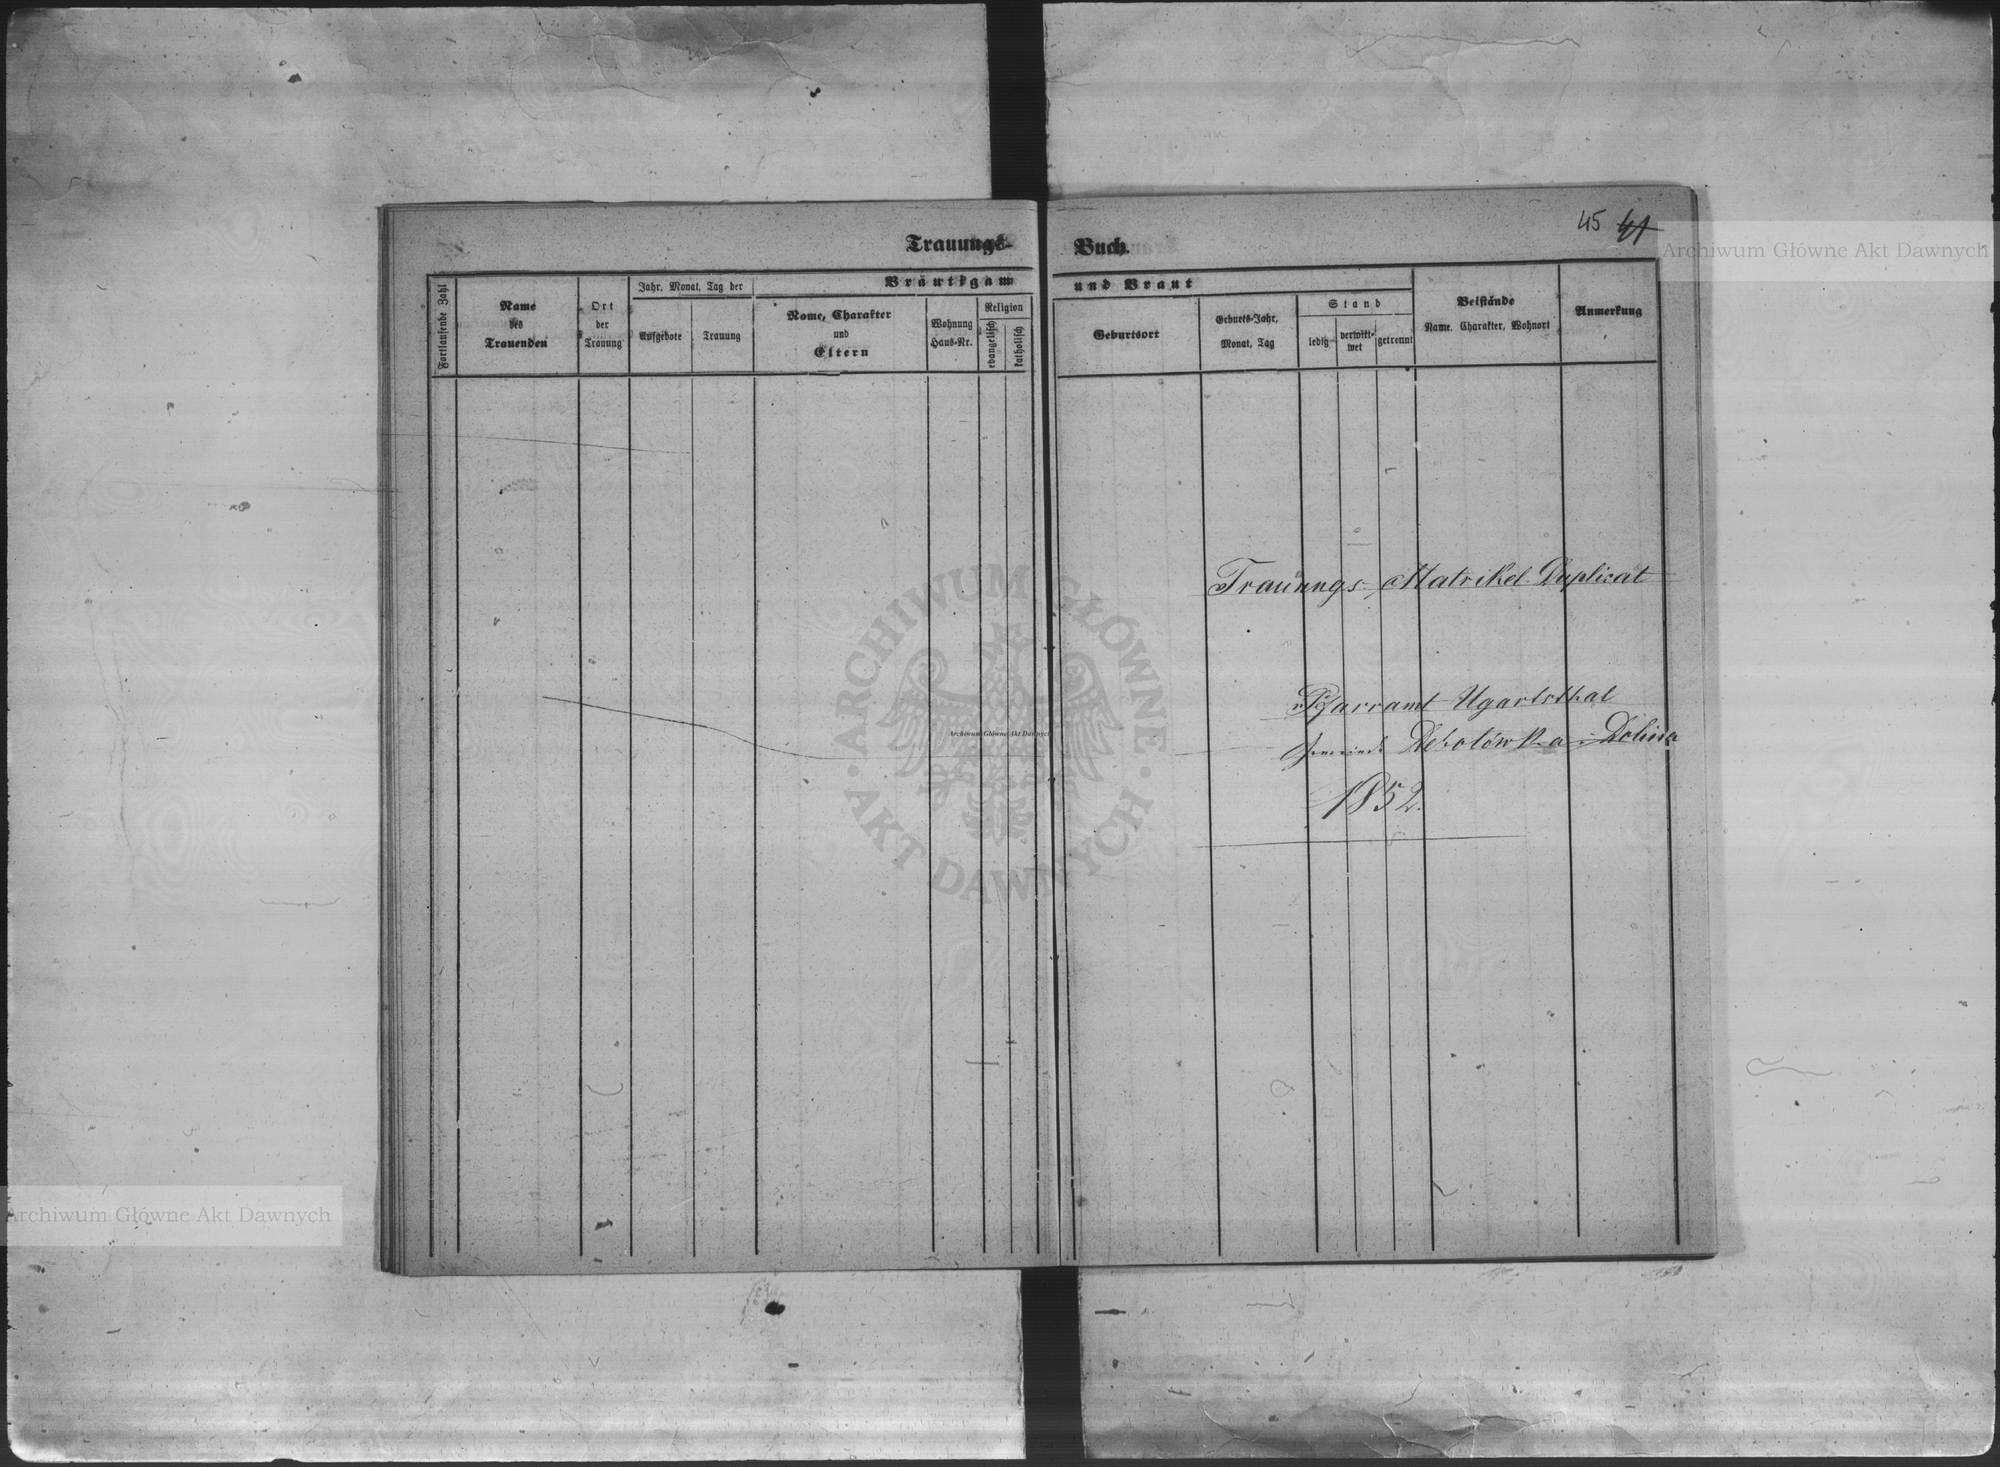 45 41
Trauungs-Buch.
Fortlaufende Zahl
Name
des
Trauenden
Ort
der
Trauung
Jahr, Monat, Tag der
Aufgebote
Trauung
Bräutigam
und Braut
Name, Charakter
und
Eltern
Wohnung
Haus-Nr.
Religion
evangelisch
katholisch
Geburtsort
Geburts-Jahr,
Monat, Tag
Stand
ledig
verwitt-
wet
getrennt
Beistände
Name. Charakter, Wohnort
Anmerkung
Trauungs-Matrikel-Duplicat
Pfarramt Ugartsthal
Debolówka-Dolina
1852.
Archiwum Główne Akt Dawnych
ARCHIWUM GŁÓWNE
AKT DAWNYCH
Archiwum Główne Akt Dawnych
Archiwum Główne Akt Dawnych